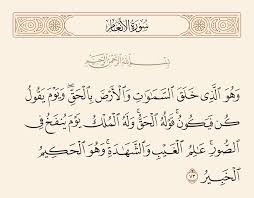 سُورَةُ الأَنْعَامِ
بِسْمِ اللَّهِ الرَّحْمَٰنِ الرَّحِيمِ
وَهُوَ الَّذِي خَلَقَ السَّمَٰوَٰتِ وَالْأَرْضَ بِالْحَقِّ ۖ وَيَوْمَ يَقُولُ
كُن فَيَكُونُ ۚ قَوْلُهُ الْحَقُّ ۚ وَلَهُ الْمُلْكُ يَوْمَ يُنفَخُ فِي
الصُّورِ ۚ عَٰلِمُ الْغَيْبِ وَالشَّهَٰدَةِ ۚ وَهُوَ الْحَكِيمُ
الْخَبِيرُ ٧٣